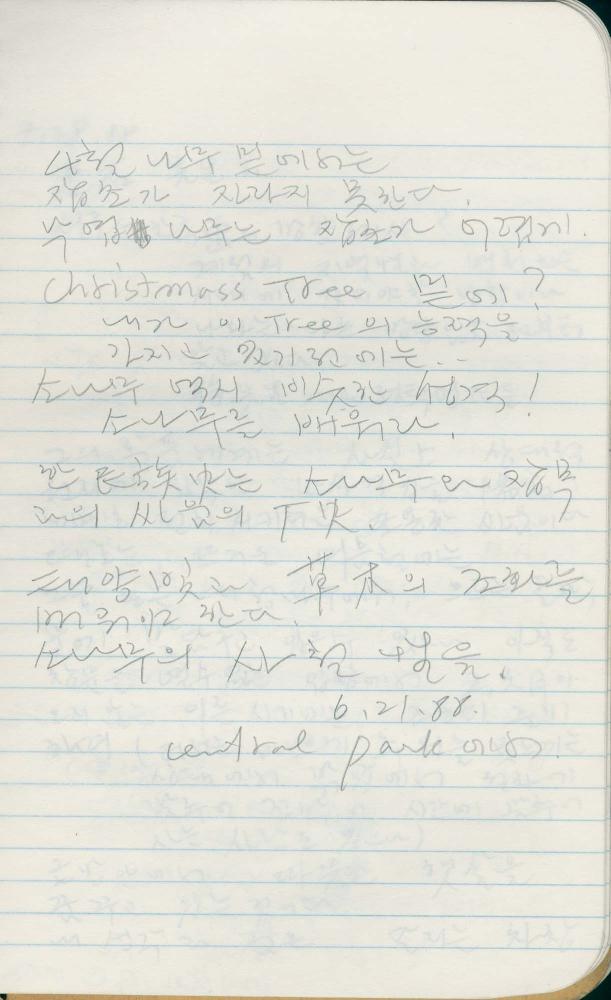 4철 나무 밑에서는
잡초가 자라지 못한다.
낙엽 나무는 잡초가 어렵게.
Christmass Tree 밑에?
내가 이 Tree의 능력을
가지고 있기전에는...
소나무 역시 비슷한 성격!
소나무를 배워라.
한 民族史는 소나무와 잡목
과의 싸움의 下史.
태양빛과 草木의 조화를
배워야 한다.
소나무의 사철
6.21.88.
central park에서.